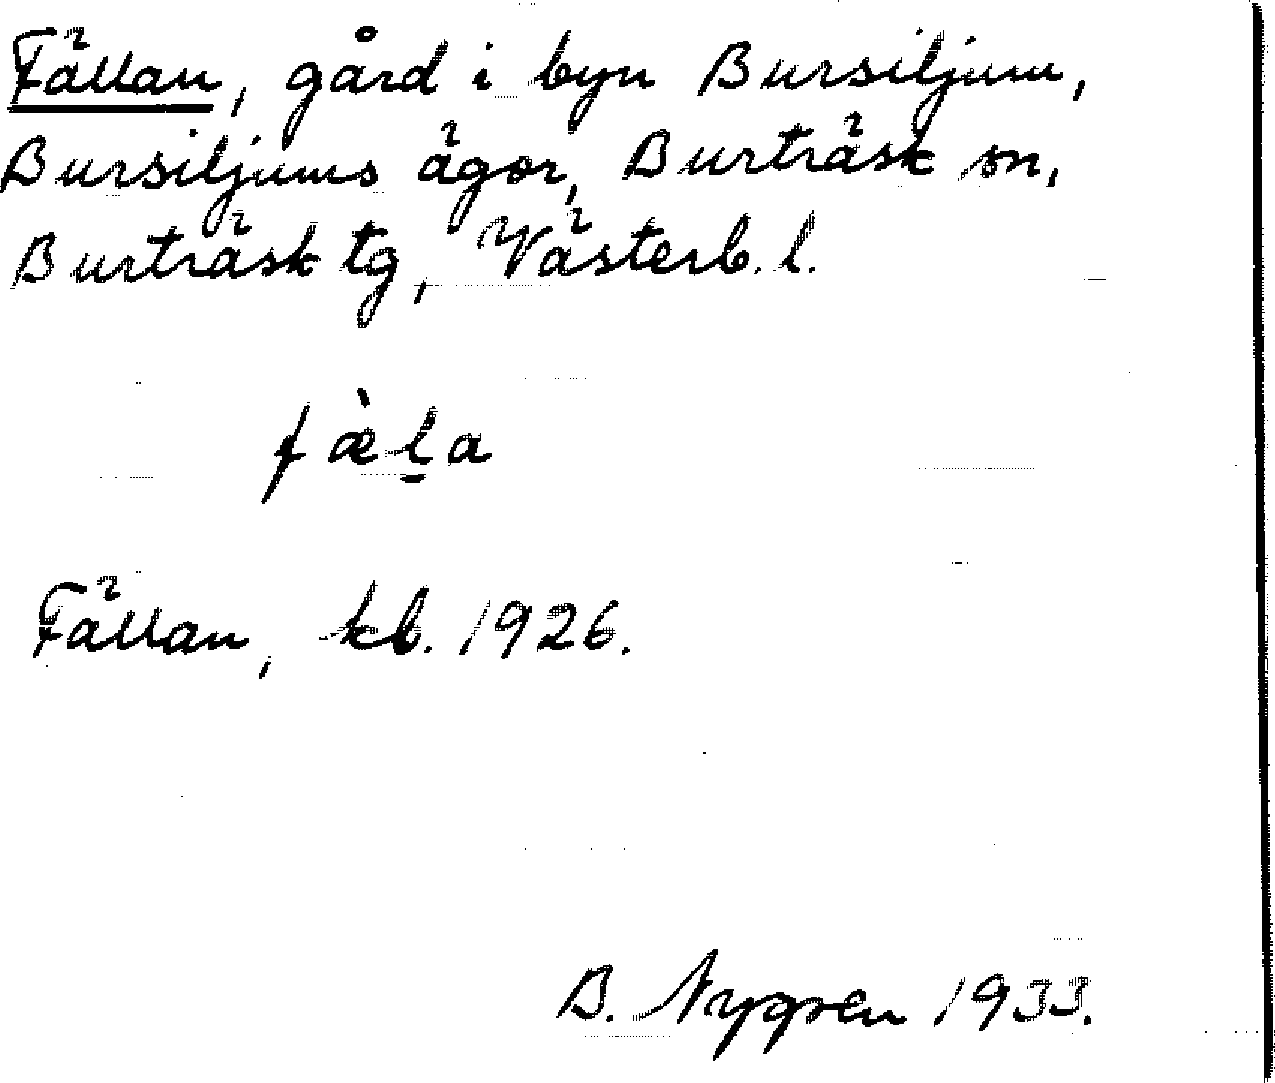 Fällan, gård i byn Bursiljum,
Bursiljums ägor, Burträsk sn,
Burträsk tg, Västerb. l.
fæ̀l̲a
Fällan, kb. 1926.
B. Nygren 1933.